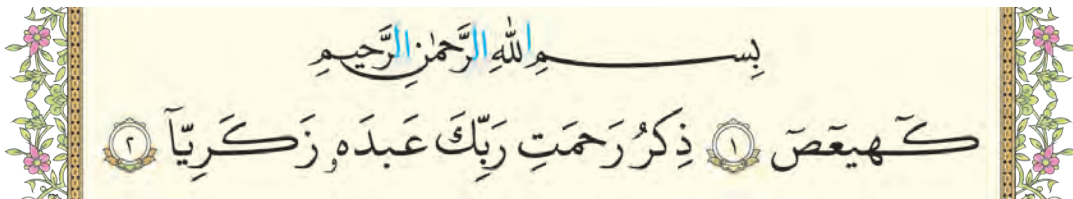 بِسمِ اللهِ الرَّحمٰنِ الرَّحِيمِ
كٓهيعٓصٓ ١ ذِكرُ رَحمَتِ رَبِّكَ عَبدَهٗ زَكَرِيَّآ ٢